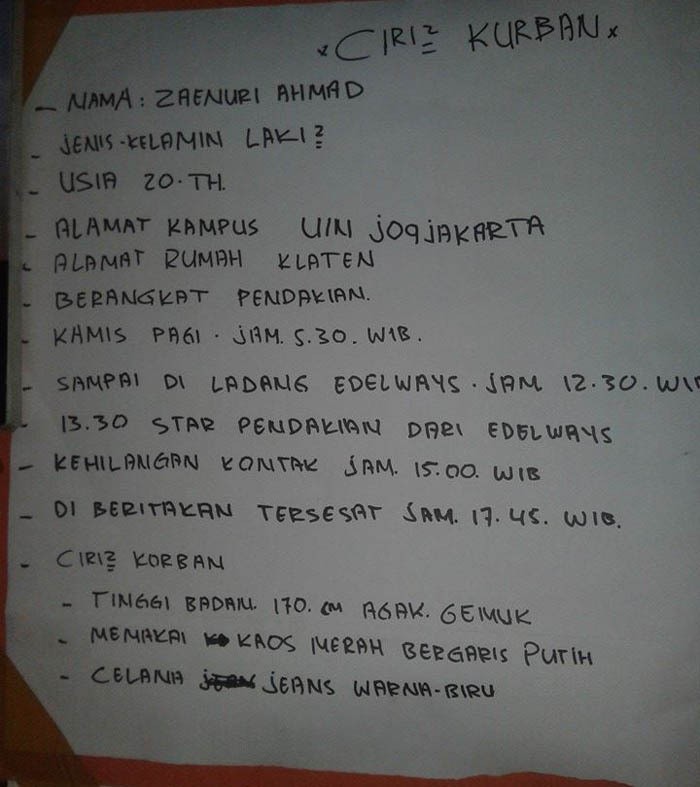 × CIRI2 KURBAN ×
- NAMA : ZAENURI AHMAD
- JENIS-KELAMIN LAKI2
- USIA 20.TH.
- ALAMAT KAMPUS UIN JOGJAKARTA
- ALAMAT RUMAH KLATEN
- BERANGKAT PENDAKIAN.
- KAMIS PAGI. JAM. 5.30. WIB.
- SAMPAI DI LADANG EDELWAYS. JAM 12.30. WIB
- 13.30 STAR PENDAKIAN DARI EDELWAYS
- KEHILANGAN KONTAK JAM. 15.00. WIB
- DI BERITAKAN TERSESAT JAM. 17.45. WIB.
- CIRI2 KORBAN
- TINGGI BADAN. 170. CM AGAK. GEMUK
- MEMAKAI KAOS MERAH BERGARIS PUTIH
- CELANA JEANS WARNA-BIRU